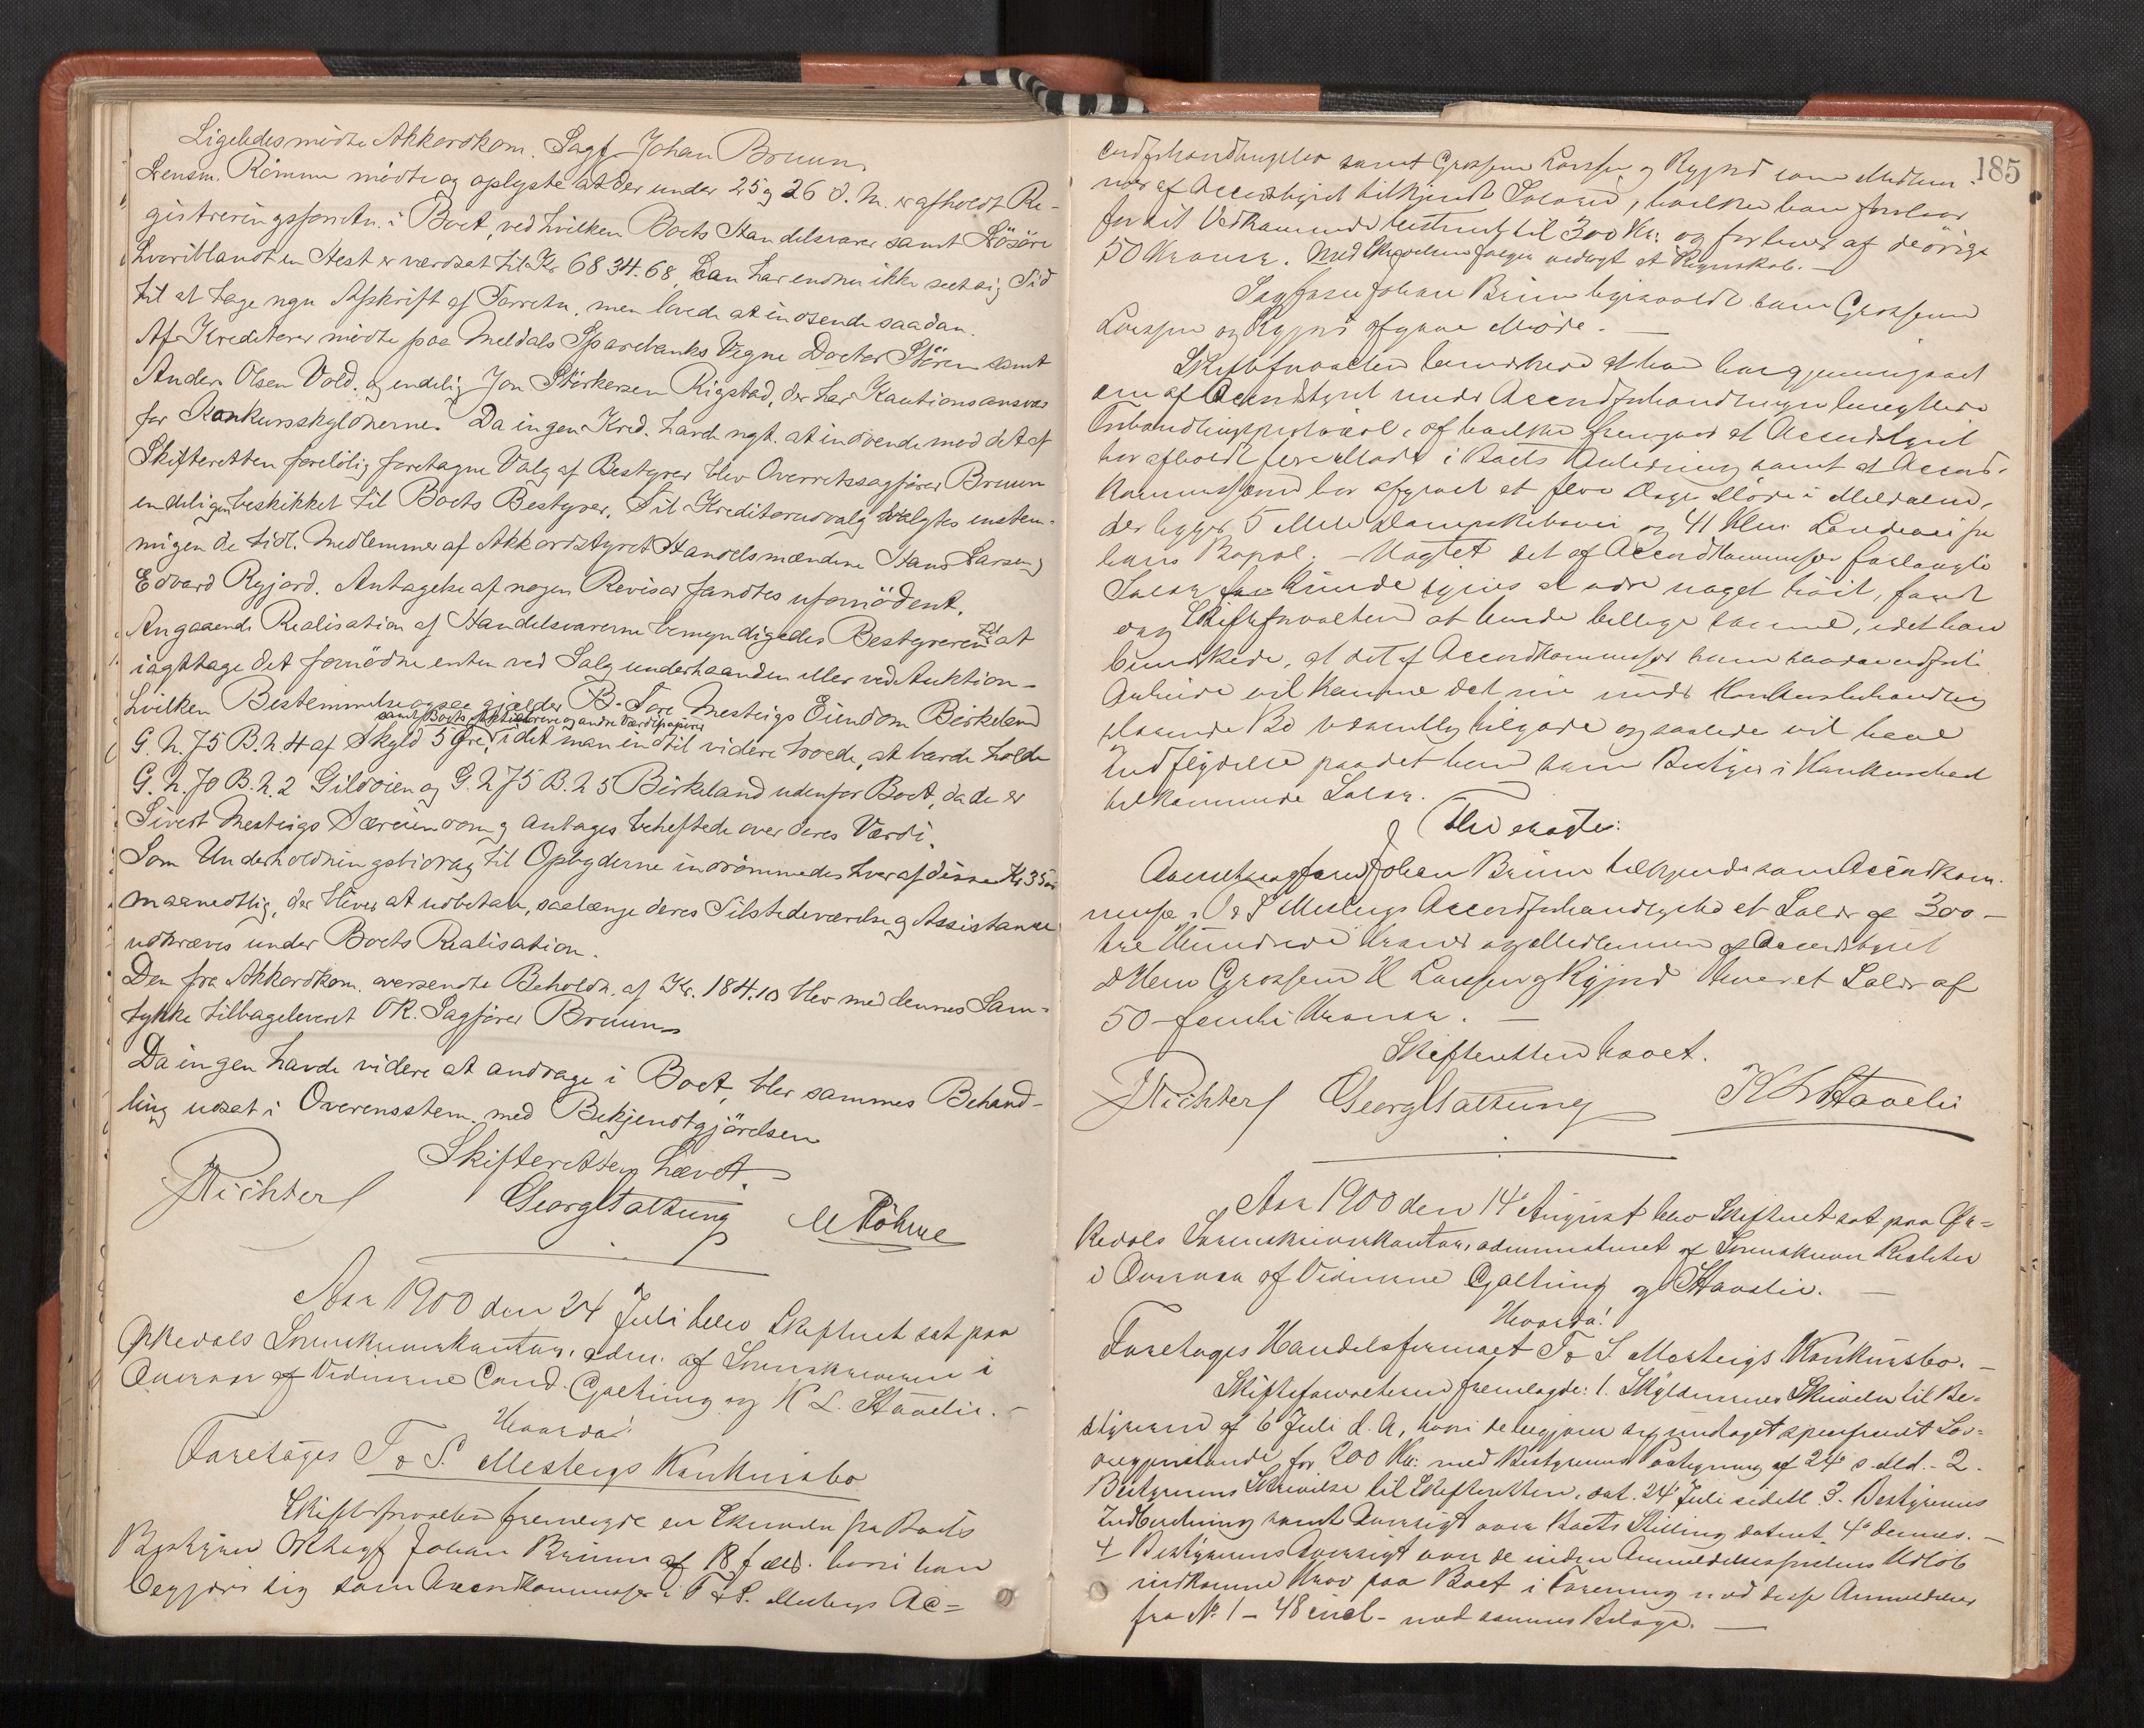 Ligeledes mödte Akkordkom. Sagf. Johan Bruun
Lensm. Römme mödte og oplyste at der under 25 og 26 d. M. er afholdt Re-
gistreringsforretn. i Boet, ved hvilken Boets Handelsvarer samt Lösöre
hvoriblandt en Hest er værdset til Kr 6834.68, han har endnu ikke seet sig Tid
til at tage ngn Afskrift af Forretn. men lovede at indsende saadan.
Af Kreditorer mödte paa Meldals Sparebanks Vegne Doctor Stören samt
Anders Olsen Vold, og endelig Jon Störkersen Rigstad, der har Kautionsansvar
for Konkursskyldnerne. Da ingen Kred. havde ngt. at indvende mod det af
Skifteretten foreløbig foretagne Valg af Bestyrer blev Overretssagfører Bruun
endeligen beskikket til Boets Bestyrer. Til Kreditorudvalg valgtes enstem-
migen de tidl. Medlemmer af Akkordstyret Handelsmændene Hans Larsen og
Edvard Rygjord. Antagelse af nogen Revisor fandtes ufornödent.
Angaaende Realisation af Handelsvarerne bemyndigedes Bestyreren til at
iagttage det fornödne enten ved Salg underhaanden eller ved Auktion -
hvilken Bestemmelse ogsaa gjælder B. Tore Mesteigs Eiendom Birkeland
samt Boets Aktiebreve og andre Værdipapirer
G. N. 75 B. N. 4 af Skyld 5 Øre, idet man indtil videre troede, at burde holde
G. N. 70 B. N. 2 Gildvien og G. N 75 B. N 5 Birkeland udenfor Boet, da de er
Sivert Mesteigs Særeiendom og antages beheftede over deres Værdi.
Som Underholdningsbidrag til Opbyderne indrömmedes hver af disse Kr 35.00
maanedtlig, der bliver at udbetale, saalænge deres Tilstedeværelse og Assistance
udkræves under Boets Realisation.
Den fra Akkordkom. oversendte Beholdn. af Kr. 184.10 blev med dennes Sam-
tykke tilbageleveret OR. Sagförer Bruun
Da ingen havde videre at andrage i Boet, blev sammes Behand-
ling udsat i Overensstem. med Bekjendtgjörelsen
Skifteretten hævet.
Richter Georg Galtung M Röhme
Aar 1900 den 24 Juli blev Skifteret sat paa
Orkedals Sorenskriverkontor, adm. af Sorenskriveren i
Overvær af Vidnerne Cand. Galtung og K L. Haavelie. -
Hvorda!
Foretoges T & S. Mesteigs Konkursbo
Skifteforvalteren fremlagde en Skrivelse fra Boets
Bestyrer ORsagf Johan Bruun af 18 ds. hvori han
begjærer sig som Accordkommissær i T & S. Mesteigs Ac=
185
cordforhandlinger samt Grosserer Larssen og Rygjord som Medlem-
mer af Accordstyret tilkjendt Salær, hvilket han foreslaar
for sit Vedkommende bestemt til 300 Kr: og for hver af de övrige
50 Kroner. Med Skrivelsen fulgte vedlagt et Regnskab. -
Sagförer Johan Bruun begjærede som Grosserer
Larssen og Rygjord afgave Møde. -
Skifteforvalteren bemerkede at han har gjennemgaaet
den af Accordstyret under Accordforhandlingen benyttede
Forhandlingsprotocol, af hvilken fremgaar at Accordstyret
har afholdt flere Møder i Boets Anledning samt at Accord-
kommissæren har afgivet et flere Dages Møde i Meldalen,
der ligger 5 Mile Dampskibsvei og 41 Klm Landevei fra
hans Bopæl. - Uagtet det af Accordkommissær forlangte
Salær kunde synes at være noget høit, fandt
dog Skifteforvalteren at burde billige samme, idet han
bemerkede, at det af Accordkommissær
Arbeide vil komme det nu under Konkursbehandling
staaende Bo væsentlig tilgode og saaledes vil have
Indflydelse paa det ham som Bestyrer i Konkursboet
tilkommende Salær.
Thi eragtes:
Overretssagförer Johan Bruun tilkjendes som Accordkom-
missær i T & S Mesteigs Accordforhandlingsbo et Salær af 300 -
tre Hundrede Kroner og Medlemmerne af Accordstyret
d'Herr Grosserer H Larssen og Rygjord hver et Salær af
50 - femti Kroner. -
Skifteretten hævet.
Richter Georg Galtung K L Haavelie
Aar 1900 den 14 August blev Skifteret sat paa Or=
kedals Sorenskriverkontor, administreret af Sorenskriver Richter
i Overvær af Vidnerne Galtung og Haavelie. -
Hvorda!
Foretoges Handelsfirmaet T & S Mesteigs Konkursbo. -
Skifteforvalteren fremlagde: 1. Skyldnernes Skrivelse til Be-
styreren af 6 Juli d. A, hvori de begjærer sig undtaget specificeret Lös-
öregjenstande for 200 Kr: med Bestyrerens Paategning af 24 s. Md. - 2.
Bestyrerens Skrivelse til Skifteretten, dat. 24 Juli sidstl. 3. Bestyrerens
Indberetning samt Oversigt over Boets Stilling dateret 4 dennes. -
4 Bestyrerens Oversigt over de inden Anmeldelsesfristens Udlöb
indkomne Krav paa Boet i Forening med disse Anmeldelser
fra No. 1 - 48 incl. - med sammes Bilage. -